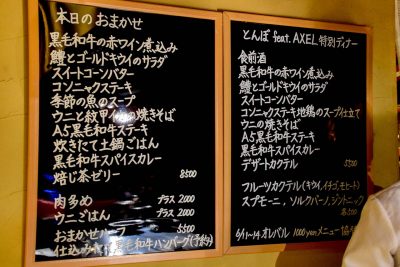 本日のおまかせ
黒毛和牛の赤ワイン煮込み
鱧とゴールドキウイのサラダ
スイートコーンバター
コンニャクステーキ
季節の魚のスープ
ウニと紋甲イカの焼きそば
A5黒毛和牛ステーキ
炊きたて土鍋ごはん
黒毛和牛スパイスカレー
焙じ茶ゼリー 8500
肉多め プラス 2000
ウニごはん プラス 2000
おまかせハーフ 5500
仕込みたて黒毛和牛ハンバーグ(予約)
とんぼ feat. AXEL 特別ディナー
食前酒
黒毛和牛の赤ワイン煮込み
鱧とゴールドキウイのサラダ
スイートコーンバター
コンニャクステーキ地鶏のスープ仕立て
ウニの焼きそば
A5黒毛和牛ステーキ
黒毛和牛スパイスカレー
デザートカクテル 5500
フルーツカクテル(キウイ,イチゴ,モヒート)
スプモーニ、ソルクバーノ,ジントニック
6/11〜14 オレバル 1000yenメニュー